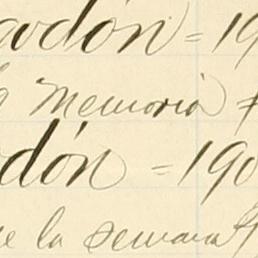 ardón = 19
la Memoria
dón = 190
e la semana